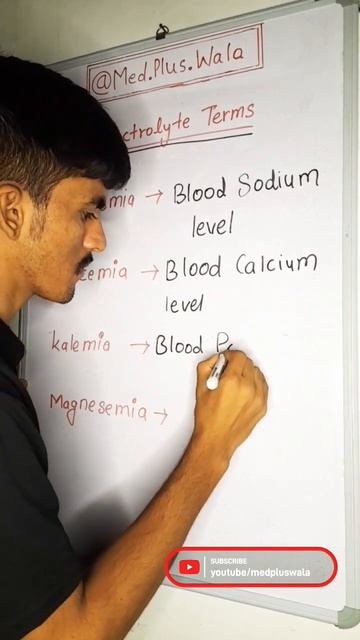 @Med.Plus.Wala
Terms
→ Blood Sodium
level
→ Blood Calcium
level
kalemia → Blood
Magnesemia →
SUBSCRIBE
youtube/medpluswala